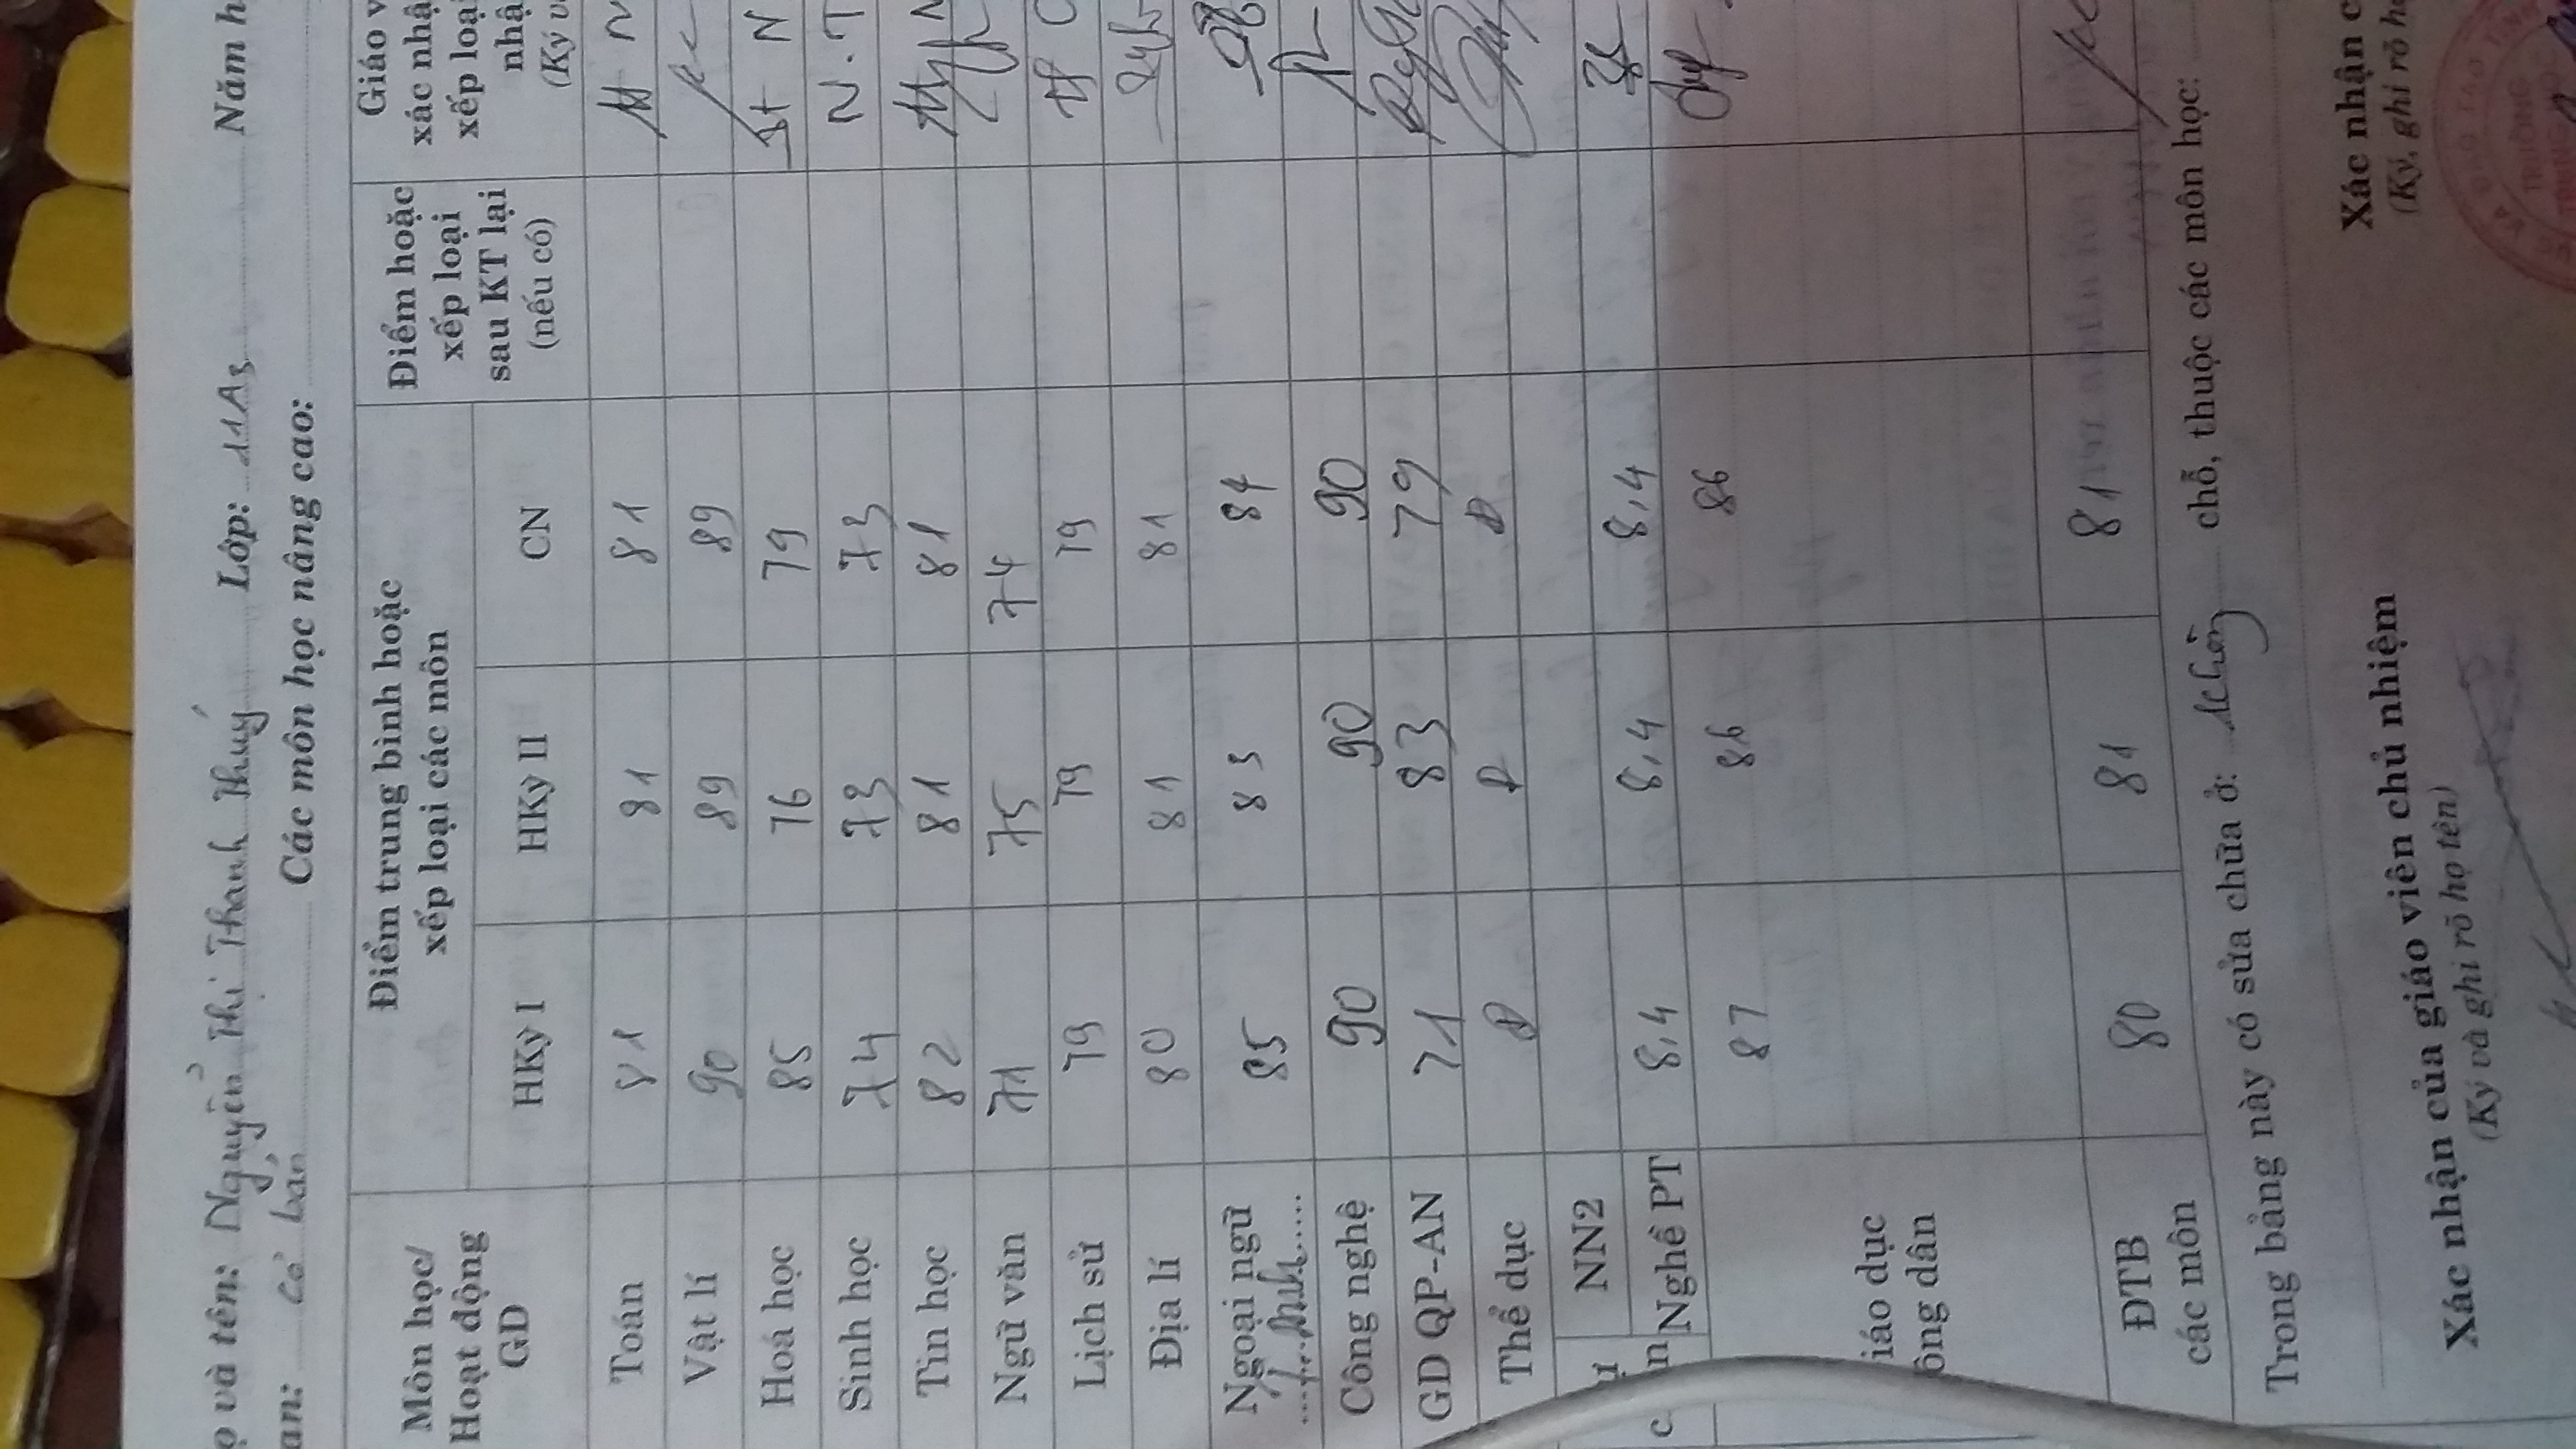 ọ và tên: Nguyễn Thị Thanh Thuý Lớp: 11A3 Năm h
an: Cơ bản Các môn học nâng cao:
Môn học/ Hoạt động GD
Điểm trung bình hoặc xếp loại các môn
Điểm hoặc xếp loại sau KT lại (nếu có)
Giáo v
xác nhậ
xếp loại
nhậ
(Ký v
HKỳ I HKỳ II CN
Toán 81 81 81
Vật lí 90 89 89
Hoá học 85 76 79
Sinh học 74 73 73
Tin học 82 81 81
Ngữ văn 71 75 74
Lịch sử 79 79 79
Địa lí 80 81 81
Ngoại ngữ 85 83 84
Công nghệ 90 90 90
GD QP-AN 71 83 79
Thể dục Đ Đ Đ
NN2
Nghề PT 8,4 8,4 8,4
iáo dục
ông dân 87 86 86
ĐTB
các môn 80 81 81
Trong bảng này có sửa chữa ở: không chỗ, thuộc các môn học:
Xác nhận của giáo viên chủ nhiệm
(Ký và ghi rõ họ tên)
Xác nhận c
(Ký, ghi rõ họ